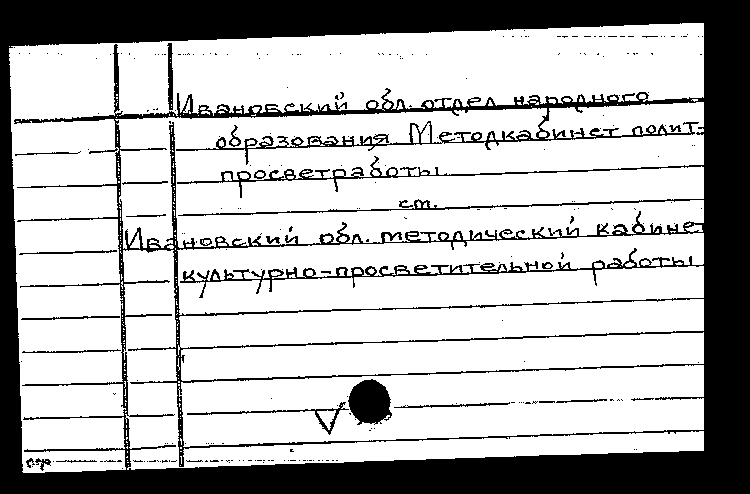 Ивановский обл. отдел народного
образования Методкабинет полит-
просветработы
см.
Ивановский обл. методический кабинет
культурно-просветительной работы